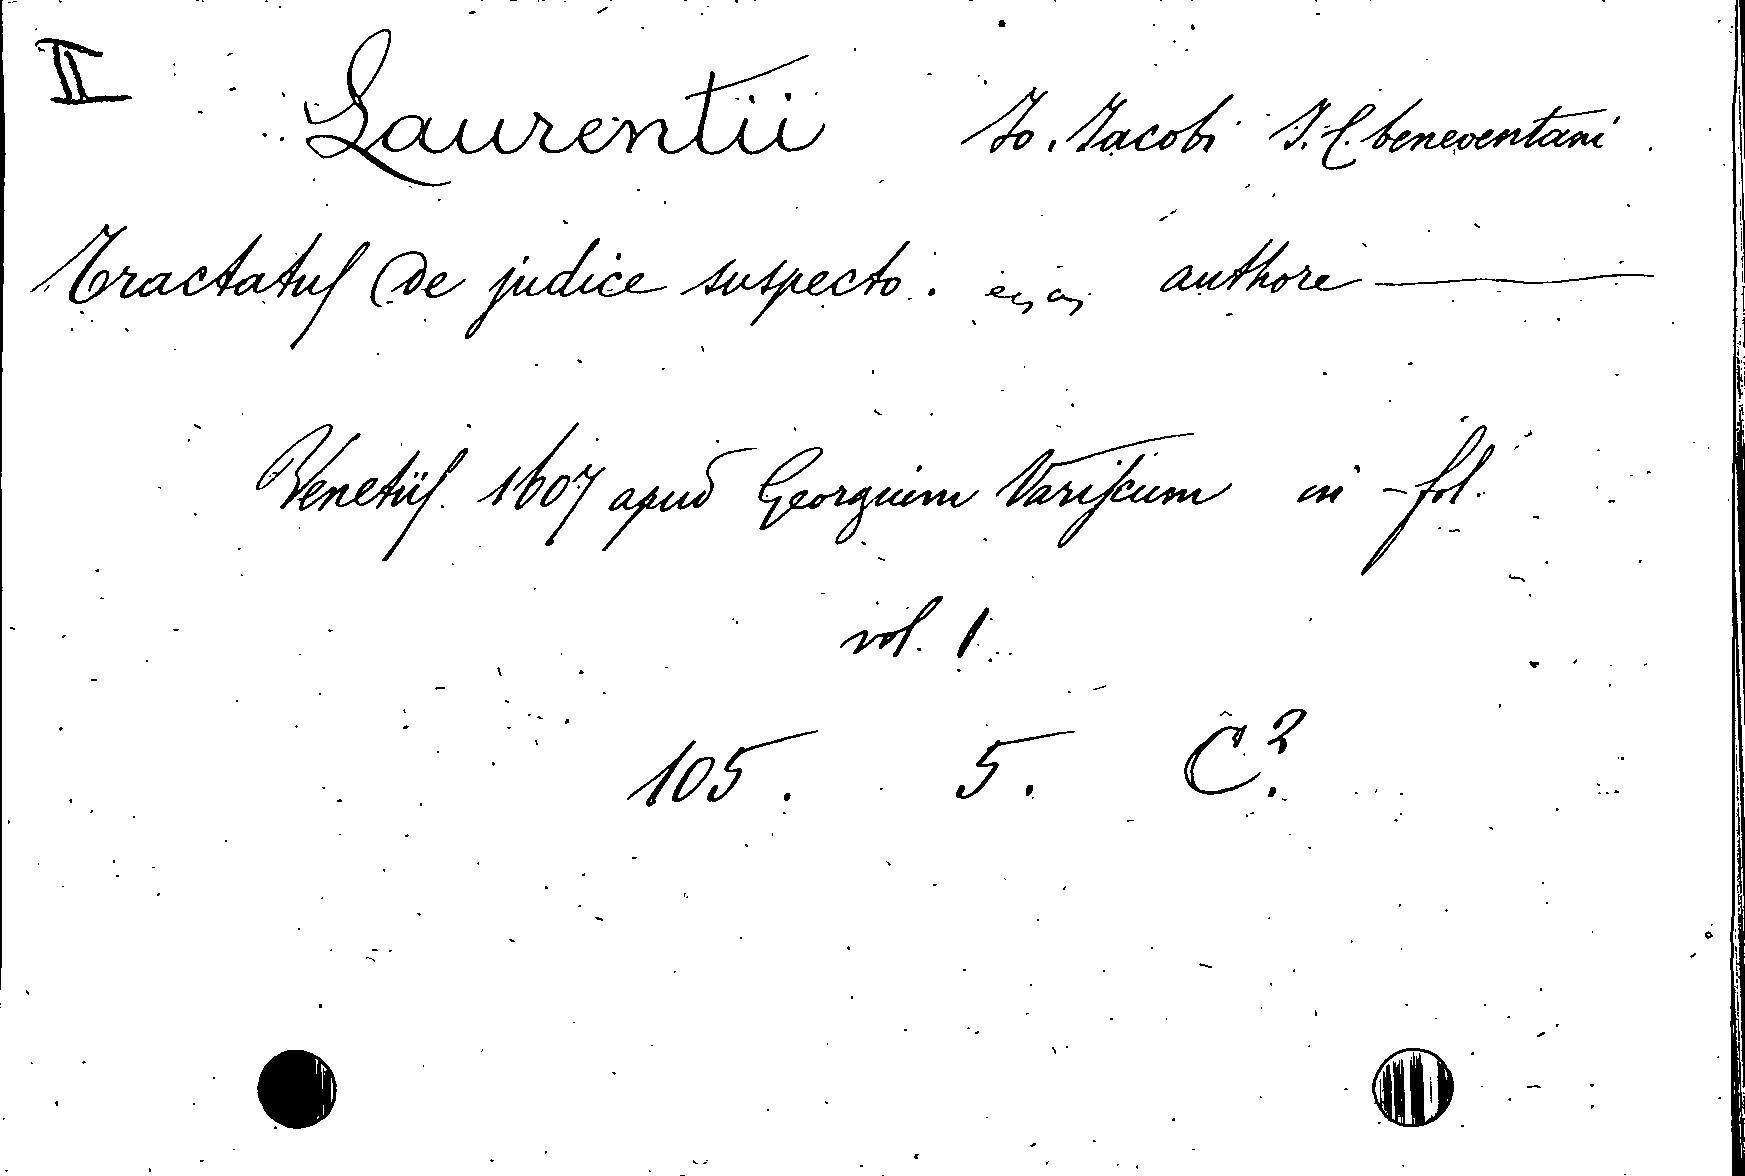 II Laurentii Jo. Jacobi J. C. beneventani
Tractatus de judice suspecto. authore —
Venetiis. 1607 apud Georguim Variscum in-fol.
vol. 1
105. 5. C².